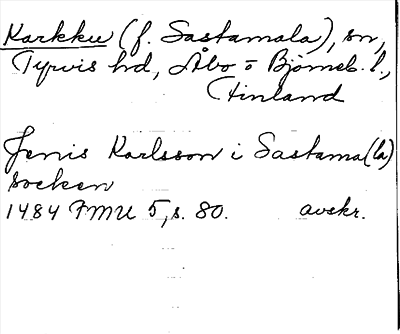 Karkku (f. Sastamala), sn,
Tyrvis hd, Åbo o Björneb. l.,
Finland
Jenis Karlsson i Sastama(la)
socken
1484 FMU 5, s. 80. avskr.